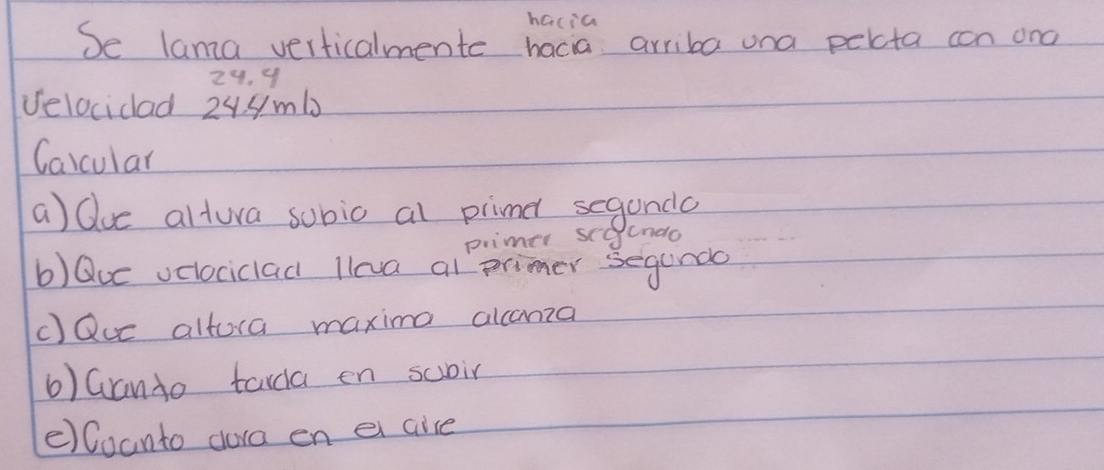 hacia
Se lanza verticalmente hacia arriba una pelota con una
24.4
Velocidad 24.4 m/s
Calcular
a) Que altura subio al primer segundo
primer segundo
b) Que velocidad lleva al primer segundo
c) Que altura maxima alcanza
b) Cuanto tarda en subir
e) Cuanto dura en el aire